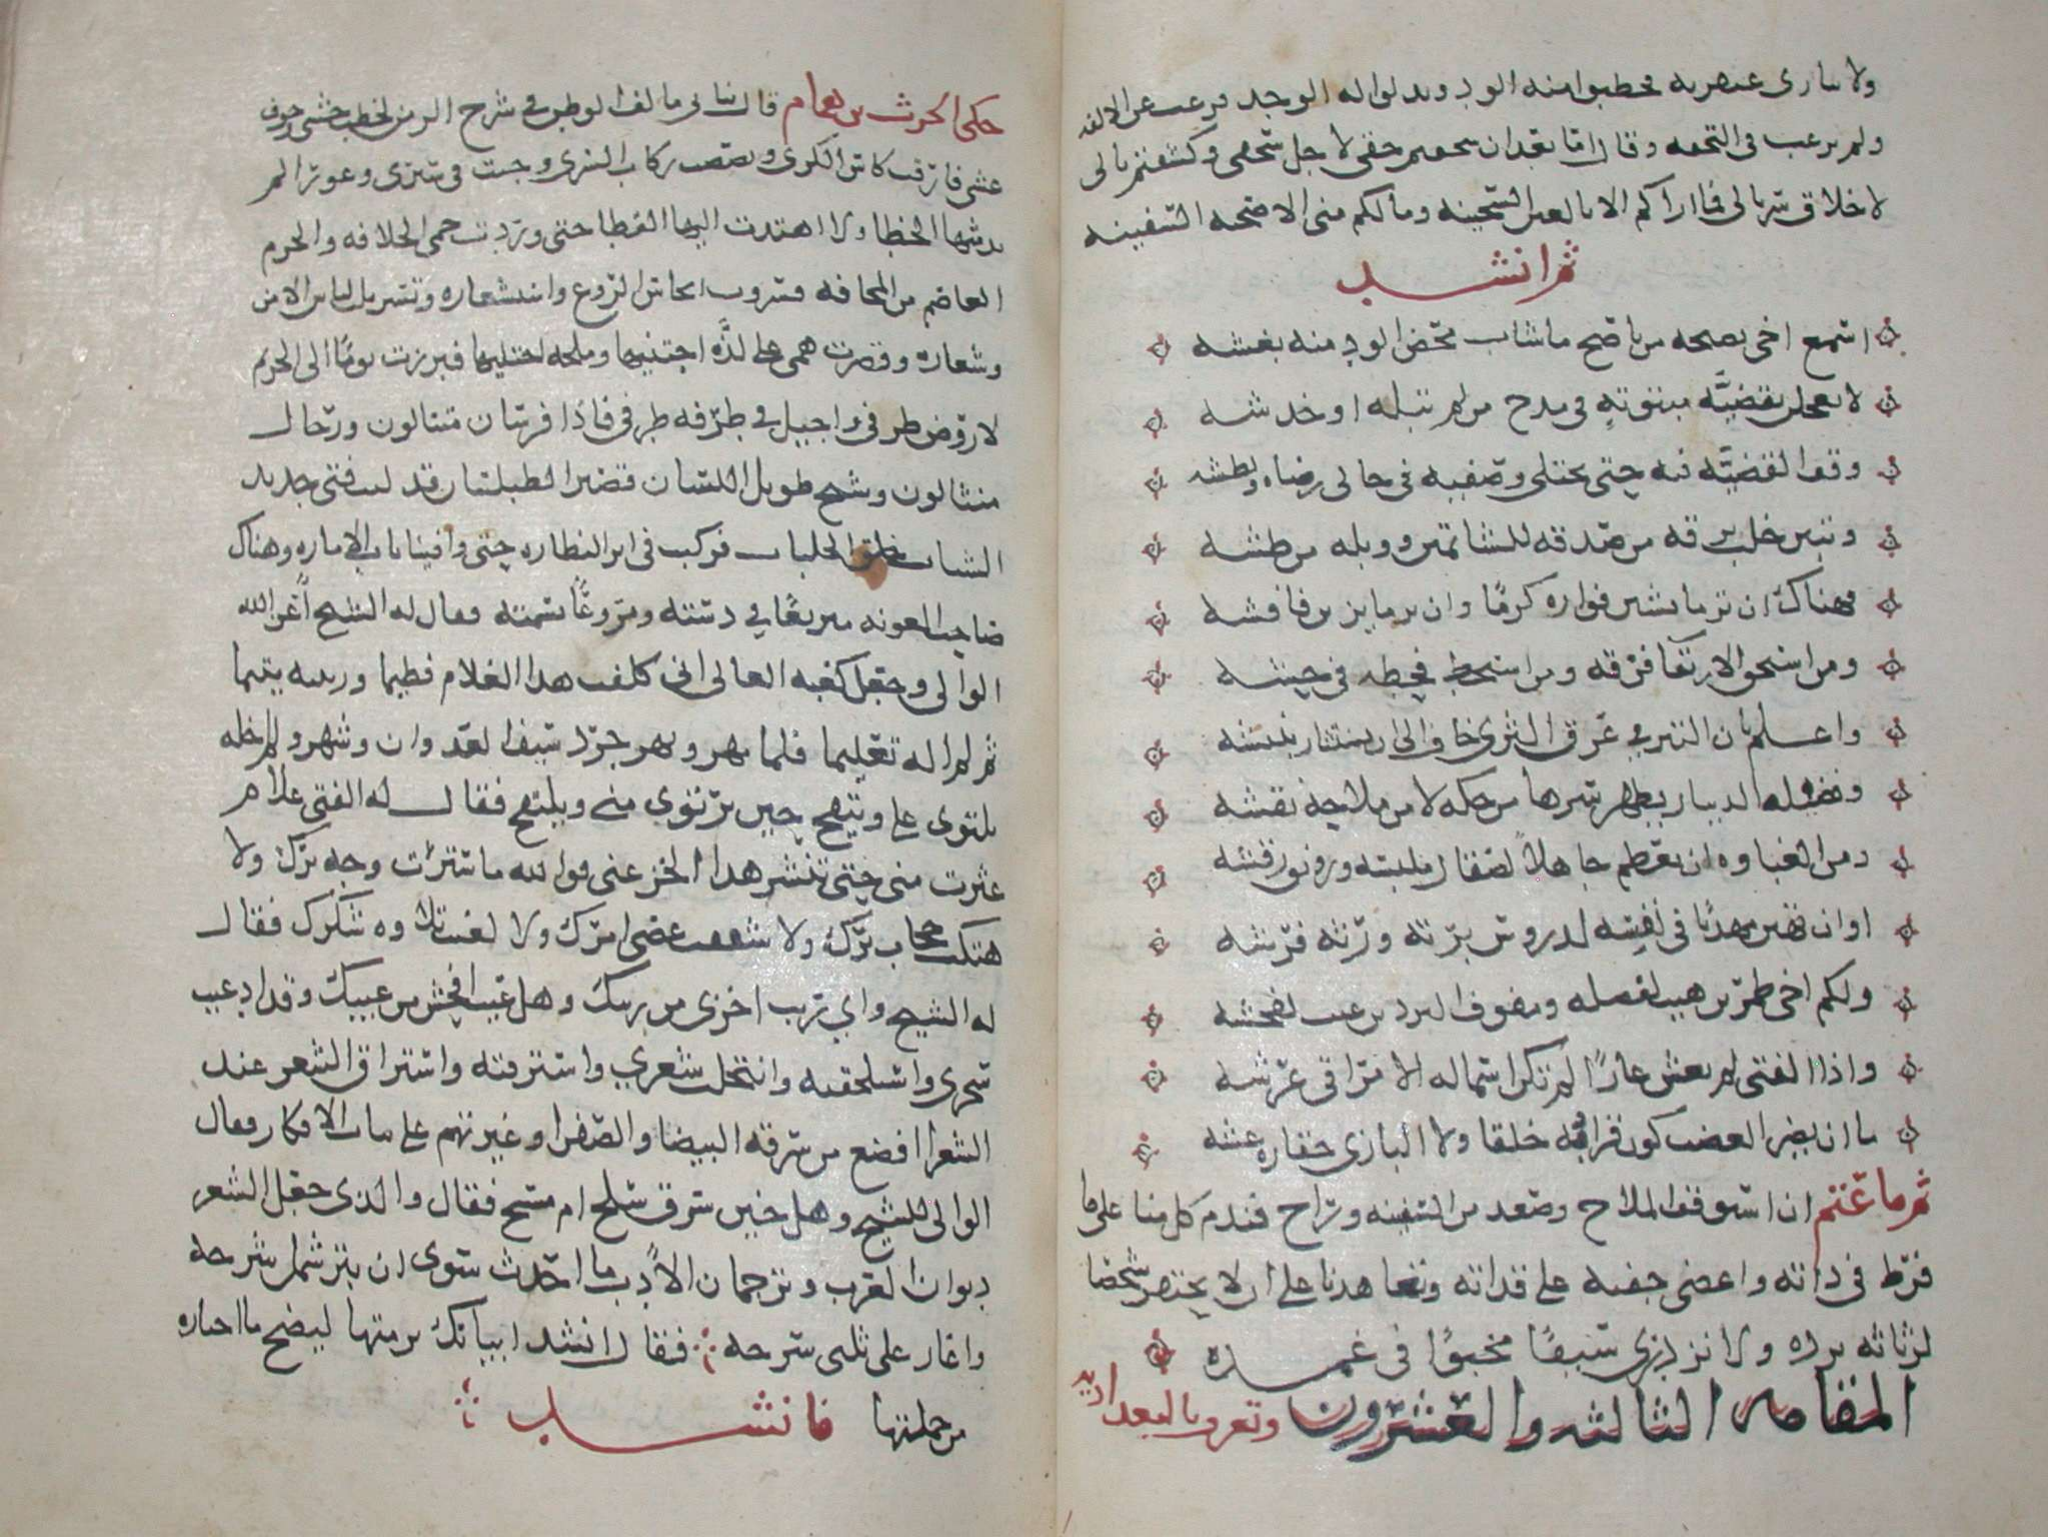 ولا يبارى عبقريه فخطبوا منه الود وبذلوا له الوجد فرغب عن الالفه
ولم يرغب فى التحفه وقال اما بعد ان سحقتم حقى لاجل سحقى وكسفتم بالى
لاخلاق سربالى فما اراكم الا بالعين السخينه وما لكم منى الا صحبه السفينه
ثم انشد
اسمع اخى نصيحه من ناصح ما شاب محض الود منه بغشه
لا تعجلن بقضيَّه مبتوته في مدح من لم تبله او خدشه
وقف القضيَّه فيه حتى تجتلى وصفيه فى حالى رضاه وبطشه
وتبين خلب برقه من صدقه للشائمين ووبله من طشه
فهناك ان تر ما يشين فواره كرمًا وان تر ما يزين فافشه
ومن استحق الارتقا فرقه ومن استحط فحطه في حشه
واعلم بان التبر في عرق الثرى خاف الى ان يستثار بنبشه
وفضيله الدينار يظهر سرها من حكه لا من ملاحه نقشه
ومن الغباوه ان تعظم جاهلاً لصقال ملبسه ورونق رقشه
او ان تهين مهذبًا في نفسه لدروس بزته ورثه فرشه
ولكم اخى طمرين هيب لفضله ومفوف البردين عيب لفحشه
واذا الفتى لم يغش عارًا لم تكن اسماله الا مراقى عرشه
ما ان يضر العضب كون قرابه خلقا ولا البازى حقاره عشه
ثم ما عتم ان استوقف الملاح وصعد من السفينه وساح فندم كل منا على ما
فرط فى ذاته واغضى جفنه على قذاته وتعاهدنا على ان لا نحتقر شخصا
لرثاثه برده ولا نزدرى سيفًا مخبوًا فى غمده
المقامه الثالثه والعشرون وتعرف بالبغداديه
حكى الحرث بن همام قال نبا بى مالف الوطن في شرخ الزمن لخطب خشى وخوف
غشى فارقت كاس الكرى ونصصت ركاب السرى وجبت في سيرى وعوثا لم
تدمثها الخطا ولا اهتدت اليها القطا حتى وردت حمى الخلافه والحرم
العاصم من المخافه فسروت ايجاس الروع واستشعاره وتسربلت لباس الامن
وشعاره وقصرت همى على لذَّه اجتنيها وملحه اجتليها فبرزت يومًا الى الحريم
لاروض طرفى واجيل في طرفه طرفى فاذا فرسان متتالون ورجال
منثالون وشيخ طويل اللسان قصير الطيلسان قد لبب فتى جديد
الشباب خلق الجلباب فركبت فى اثر النظاره حتى وافينا باب الاماره وهناك
صاحب المعونه متربعًا في دسته ومروعًا بسمته فقال له الشيخ اعز الله
الوالى وجعل كعبه العالى انى كفلت هذا الغلام فطيما وربيته يتيما
ثم لم اله تعليما فلما مهر وبهر جرد سيف العدوان وشهر ولم اخله
يلتوى على ويتقح حين يرتوى منى ويلتقح فقال له الفتى علام
عثرت منى حتى تنشر هذا الخزى عنى فوالله ما سترت وجه برك ولا
هتكت حجاب سرك ولا شققت عصى امرك ولا الغيت تلاوه شكرك فقال
له الشيخ واي ريب اخزى من ريبك وهل عيب افحش من عيبك وقد ادعيت
سحرى واستلحقته وانتحلت شعري واسترقته واستراق الشعر عند
الشعرا افضع من سرقه البيضا والصفرا وغيرتهم على بنات الافكار فقال
الوالى للشيخ وهل حين سرق سلخ ام مسخ فقال والذى جعل الشعر
ديوان العرب وترجمان الادب ما احدث سوى ان بتر شمل شرحه
واغار على ثلثى سرحه فقال انشد ابياتك برمتها ليضح ما احتازه
من جملتها فانشد